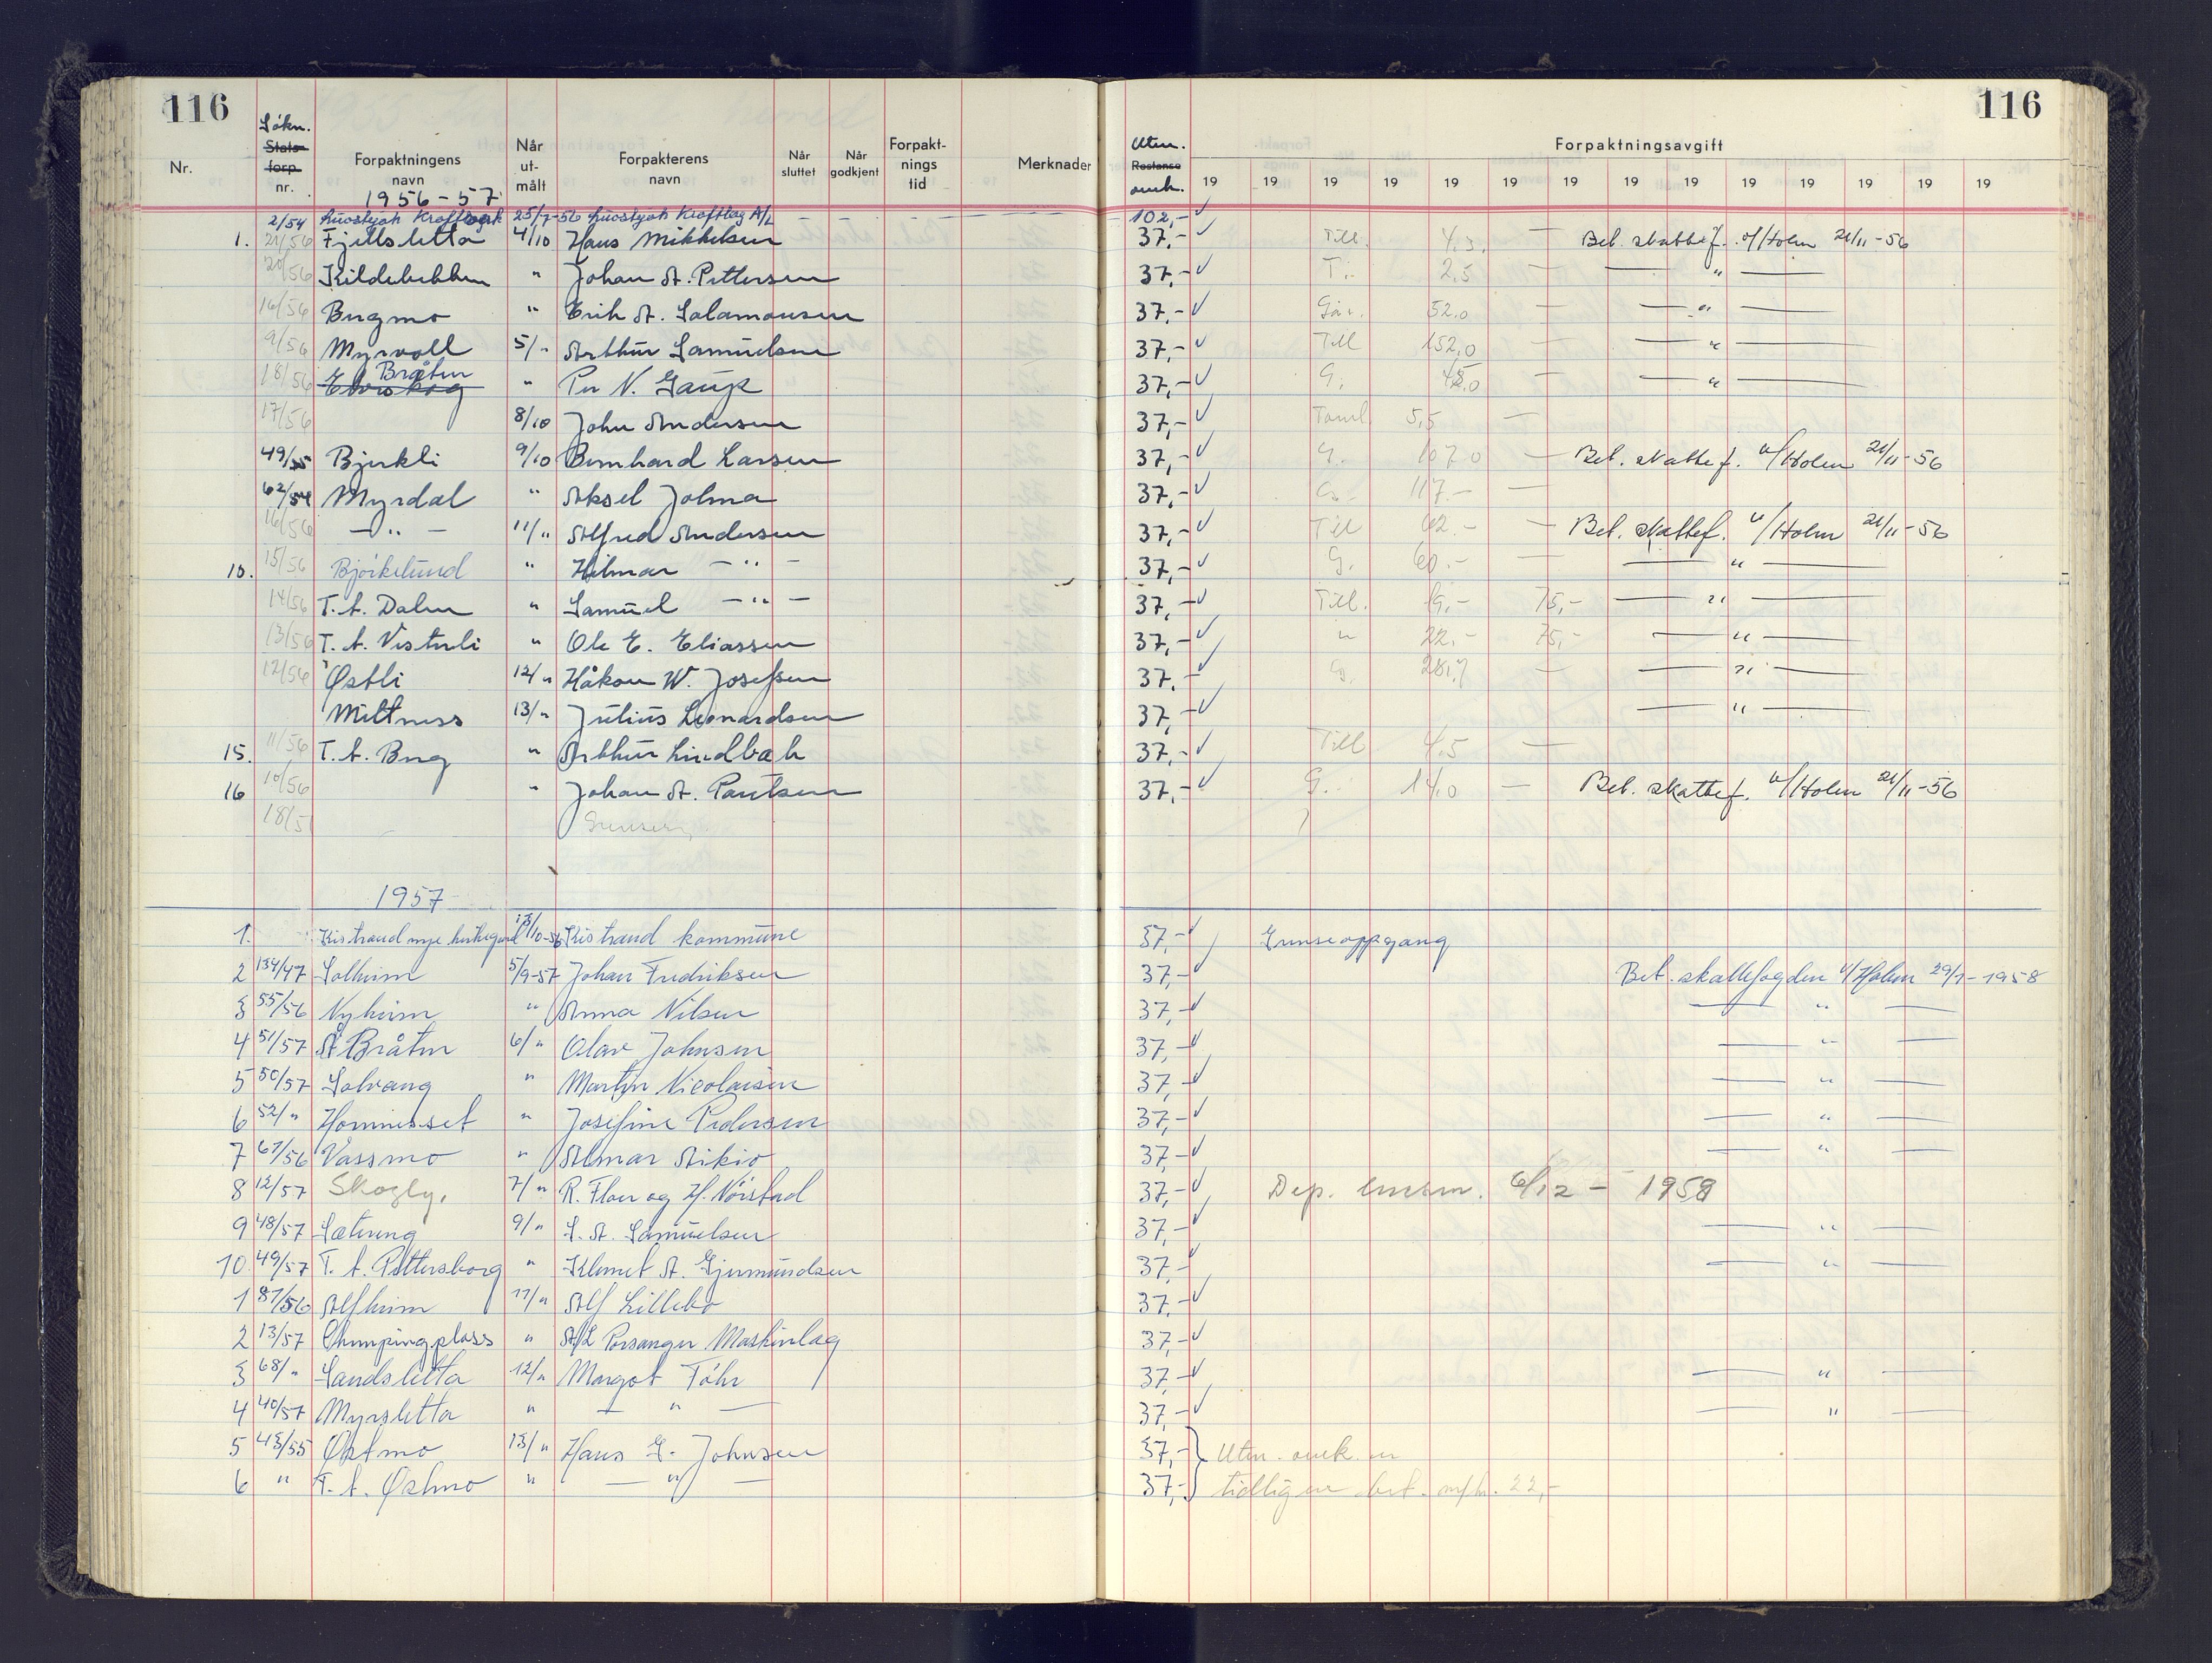 116 116
Søkn. Stats- forp. nr.
Nr. Forpaktningens navn Når ut- målt Forpakterens navn Når sluttet Når godkjent Forpakt- nings tid Merknader Utm. Restanse omk. Forpaktningsavgift
19 19 19 19 19 19 19 19 19 19 19 19 19 19
1956-57
2/54 Luostejok Kraftverk 25/7-56 Luostejok Kraftlag A/L 102,-
1. 21/56 Fjellsletta 4/10 Hans Mikkelsen 37,- Till. 4.3. — Bet. skattef. v/Holm 21/11-56
20/56 Kildebakken " Johan A. Pettersen 37,- T. 2.5 — — " —
16/56 Bugmo " Erik A. Salamonsen 37,- 52.0 — — " —
9/56 Myrvoll 5/" Arthur Samuelsen 37,- Till 152.0 — — " —
18/56 Bråten " Per N. Gaup 37,- G. — — " —
17/56 8/10 John Andersen 37,- 5,5 —
49/55 Bjerkli 9/10 Bernhard Larsen 37,- G. 107.0 — Bet. skattef. v/Holm 21/11-56
62/54 Myrdal " Aksel Jolma 37,- G. 117.- —
16/56 — " — 11/" Alfred Andersen 37,- Till 62.- — Bet. skattef. v/Holm 21/11-56
10. 15/56 Bjørkelund " Hilmar — " — 37,- G. 60.- — — " —
14/56 T.t. Dalen " Samuel — " — 37,- Till. 75,- — " —
13/56 T.t. Vesterli " Ole E. Eliassen 37,- " 22.- 75,- — " —
12/56 Østli 12/" Håkon W. Josefsen 37,- G. — — " —
Miltness 13/" Julius Leonardsen 37,- — " —
15. 11/56 T.t. Bug " Arthur Lindbak 37,- Till 4.5 —
16 10/56 " Johan A. Paulsen 37,- G. 14.0 — Bet. skattef. v/Holm 21/11-56
18/5
1957
1. Kistrand nye kirkegård 13/10-56 Kistrand kommune 37,- Grenseoppgang
2 134/47 Solheim 5/9-57 Johan Fredriksen 37,- Bet. skattefogden v/Holm 29/1-1958
3 55/56 Nyheim " Anna Nilsen 37,- — " —
4 51/57 Bråten 6/" Olav Johnsen 37,- — " —
5 50/57 Solvang " Martin Nicolaisen 37,- — " —
6 52/" Hominesset " Josefine Pedersen 37,- — " —
7 67/56 Vassmo " Almar Aikio 37,- — " —
8 12/57 Skogly. 7/" R. Floer og H. Nørstad 37,- Dep. lensm. 6/12 - 1958
9 48/57 Sætereng 9/" S. A. Samuelsen 37,- — " —
10. 49/57 T.t. Pettersborg " Klemet A. Gjermundsen 37,- — " —
1 87/56 Alfheim 11/" Alf Lillebo 37,-
2 13/57 Campingplass " A/L Porsanger Maskinlag 37,-
3 68/" Sandsletta 12/" Margot Føhr 37,- — " —
4 40/57 Myrsletta " — " — 37,- — " —
5 43/55 Østmo 13/" Hans G. Johnsen 37,- Utm. omk. er
6 " T.t. Østmo " — " — 37,- tidligere bet. m/kr. 22,-